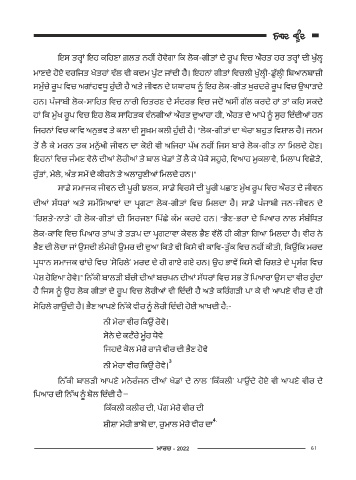 ਨਿਵਾਣ ਬੂੰਦ
ਇਸ ਤਰ੍ਹਾਂ ਇਹ ਕਹਿਣਾ ਗ਼ਲਤ ਨਹੀਂ ਹੋਵੇਗਾ ਕਿ ਲੋਕ-ਗੀਤਾਂ ਦੇ ਰੂਪ ਵਿਚ ਔਰਤ ਹਰ ਤਰ੍ਹਾਂ ਦੀ ਖੁੱਲ੍ਹ
ਮਾਣਦੇ ਹੋਏ ਵਰਜਿਤ ਖੇਤਰਾਂ ਵੱਲ ਵੀ ਕਦਮ ਪੁੱਟ ਜਾਂਦੀ ਹੈ। ਇਹਨਾਂ ਗੀਤਾਂ ਵਿਚਲੀ ਖੁੱਲ੍ਹੀ-ਡੁੱਲ੍ਹੀ ਬਿਆਨਬਾਜ਼ੀ
ਸਮੁੱਚੇ ਰੂਪ ਵਿਚ ਅਗਾਂਹਵਧੂ ਹੁੰਦੀ ਹੈ ਅਤੇ ਜੀਵਨ ਦੇ ਯਥਾਰਥ ਨੂੰ ਇਹ ਲੋਕ-ਗੀਤ ਖੁਰਦਰੇ ਰੂਪ ਵਿਚ ਉਘਾੜਦੇ
ਹਨ। ਪੰਜਾਬੀ ਲੋਕ-ਸਾਹਿਤ ਵਿਚ ਨਾਰੀ ਚਿਤਰਣ ਦੇ ਸੰਦਰਭ ਵਿਚ ਜਦੋਂ ਅਸੀਂ ਗੱਲ ਕਰਦੇ ਹਾਂ ਤਾਂ ਕਹਿ ਸਕਦੇ
ਹਾਂ ਕਿ ਮੁੱਖ ਰੂਪ ਵਿਚ ਇਹ ਲੋਕ ਸਾਹਿਤਕ ਵੰਨਗੀਆਂ ਔਰਤ ਦੁਆਰਾ ਹੀ, ਔਰਤ ਦੇ ਆਪੇ ਨੂੰ ਸੁਹ ਦਿੰਦੀਆਂ ਹਨ
ਜਿਹਨਾਂ ਵਿਚ ਕਾਵਿ ਅਨੁਭਵ ਤੇ ਕਲਾ ਦੀ ਸੂਖਮ ਕਲੀ ਹੁੰਦੀ ਹੈ। "ਲੋਕ-ਗੀਤਾਂ ਦਾ ਘੇਰਾ ਬਹੁਤ ਵਿਸ਼ਾਲ ਹੈ। ਜਨਮ
ਤੋਂ ਲੈ ਕੇ ਮਰਨ ਤਕ ਮਨੁੱਖੀ ਜੀਵਨ ਦਾ ਕੋਈ ਵੀ ਅਜਿਹਾ ਪੱਖ ਨਹੀਂ ਜਿਸ ਬਾਰੇ ਲੋਕ-ਗੀਤ ਨਾ ਮਿਲਦੇ ਹੋਣ।
ਇਹਨਾਂ ਵਿਚ ਜੰਮਣ ਵੇਲੇ ਦੀਆਂ ਲੋਹੀਆਂ ਤੇ ਬਾਲ ਖੇਡਾਂ ਤੋਂ ਲੈ ਕੇ ਪੇਕੇ ਸਹੁਰੇ, ਵਿਆਹ ਮੁਕਲਾਵੇ, ਮਿਲਾਪ ਵਿਛੋੜੇ,
ਰੁੱਤਾਂ, ਮੇਲੇ, ਅੰਤ ਸਮੇਂ ਦੇ ਕੀਰਨੇ ਤੇ ਅਲਾਹੁਣੀਆਂ ਮਿਲਦੇ ਹਨ।"
ਸਾਡੇ ਸਮਾਜਕ ਜੀਵਨ ਦੀ ਪੂਰੀ ਝਲਕ, ਸਾਡੇ ਵਿਰਸੇ ਦੀ ਪੂਰੀ ਪਛਾਣ ਮੁੱਖ ਰੂਪ ਵਿਚ ਔਰਤ ਦੇ ਜੀਵਨ
ਦੀਆਂ ਸੱਧਰਾਂ ਅਤੇ ਸਮੱਸਿਆਵਾਂ ਦਾ ਪ੍ਰਗਟਾ ਲੋਕ-ਗੀਤਾਂ ਵਿਚ ਮਿਲਦਾ ਹੈ। ਸਾਡੇ ਪੰਜਾਬੀ ਜਨ-ਜੀਵਨ ਦੇ
'ਰਿਸ਼ਤੇ-ਨਾਤੇ' ਹੀ ਲੋਕ-ਗੀਤਾਂ ਦੀ ਸਿਰਜਣਾ ਪਿੱਛੇ ਕੰਮ ਕਰਦੇ ਹਨ। "ਭੈਣ-ਭਰਾ ਦੇ ਪਿਆਰ ਨਾਲ ਸੰਬੰਧਿਤ
ਲੋਕ-ਕਾਵਿ ਵਿਚ ਪਿਆਰ ਤਾਂਘ ਤੇ ਤੜਪ ਦਾ ਪ੍ਰਗਟਾਵਾ ਕੇਵਲ ਭੈਣ ਵੱਲੋਂ ਹੀ ਕੀਤਾ ਗਿਆ ਮਿਲਦਾ ਹੈ। ਵੀਰ ਨੇ
ਭੈਣ ਦੀ ਲੋਚਾ ਜਾਂ ਉਸਦੀ ਲੰਮੇਰੀ ਉਮਰ ਦੀ ਦੁਆ ਕਿਤੇ ਵੀ ਕਿਸੇ ਵੀ ਕਾਵਿ-ਤੁੱਕ ਵਿਚ ਨਹੀਂ ਕੀਤੀ, ਕਿਉਂਕਿ ਮਰਦ
ਪ੍ਰਧਾਨ ਸਮਾਜਕ ਢਾਂਚੇ ਵਿਚ 'ਸੋਹਿਲੇ' ਮਰਦ ਦੇ ਹੀ ਗਾਏ ਗਏ ਹਨ। ਉਹ ਭਾਵੇਂ ਕਿਸੇ ਵੀ ਰਿਸ਼ਤੇ ਦੇ ਪ੍ਰਸੰਗ ਵਿਚ
ਪੇਸ਼ ਹੋਇਆ ਹੋਵੇ।" ਨਿੱਕੀ ਬਾਲੜੀ ਬੱਚੀ ਦੀਆਂ ਬਚਪਨ ਦੀਆਂ ਸੱਧਰਾਂ ਵਿਚ ਸਭ ਤੋਂ ਪਿਆਰਾ ਉਸ ਦਾ ਵੀਰ ਹੁੰਦਾ
ਹੈ ਜਿਸ ਨੂੰ ਉਹ ਲੋਕ ਗੀਤਾਂ ਦੇ ਰੂਪ ਵਿਚ ਲੋਰੀਆਂ ਵੀ ਦਿੰਦੀ ਹੈ ਅਤੇ ਕਰਿੰਗੜੀ ਪਾ ਕੇ ਵੀ ਆਪਣੇ ਵੀਰ ਦੇ ਹੀ
ਸੋਹਿਲੇ ਗਾਉਂਦੀ ਹੈ। ਭੈਣ ਆਪਣੇ ਨਿੱਕੇ ਵੀਰ ਨੂੰ ਲੋਰੀ ਦਿੰਦੀ ਹੋਈ ਆਖਦੀ ਹੈ:-
ਨੀ ਮੇਰਾ ਵੀਰ ਕਿਉਂ ਰੋਵੇ।
ਸੋਨੇ ਦੇ ਕਟੋਰੇ ਮੂੰਹ ਧੋਵੇ
ਜਿਹਦੇ ਕੋਲ ਮੇਰੇ ਰਾਜੇ ਵੀਰ ਦੀ ਭੈਣ ਹੋਵੇ
ਨੀ ਮੇਰਾ ਵੀਰ ਕਿਉਂ ਰੋਵੇ।3
ਨਿੱਕੀ ਬਾਲੜੀ ਆਪਣੇ ਮਨੋਰੰਜਨ ਦੀਆਂ ਖੇਡਾਂ ਦੇ ਨਾਲ 'ਕਿੱਕਲੀ' ਪਾਉਂਦੇ ਹੋਏ ਵੀ ਆਪਣੇ ਵੀਰ ਦੇ
ਪਿਆਰ ਦੀ ਨਿੱਘ ਨੂੰ ਬੋਲ ਦਿੰਦੀ ਹੈ—
ਕਿੱਕਲੀ ਕਲੀਰ ਦੀ, ਪੱਗ ਮੇਰੇ ਵੀਰ ਦੀ
ਸ਼ੀਸ਼ਾ ਮੇਰੀ ਭਾਬੋ ਦਾ, ਰੁਮਾਲ ਮੇਰੇ ਵੀਰ ਦਾ4
ਮਾਰਚ - 2022
61